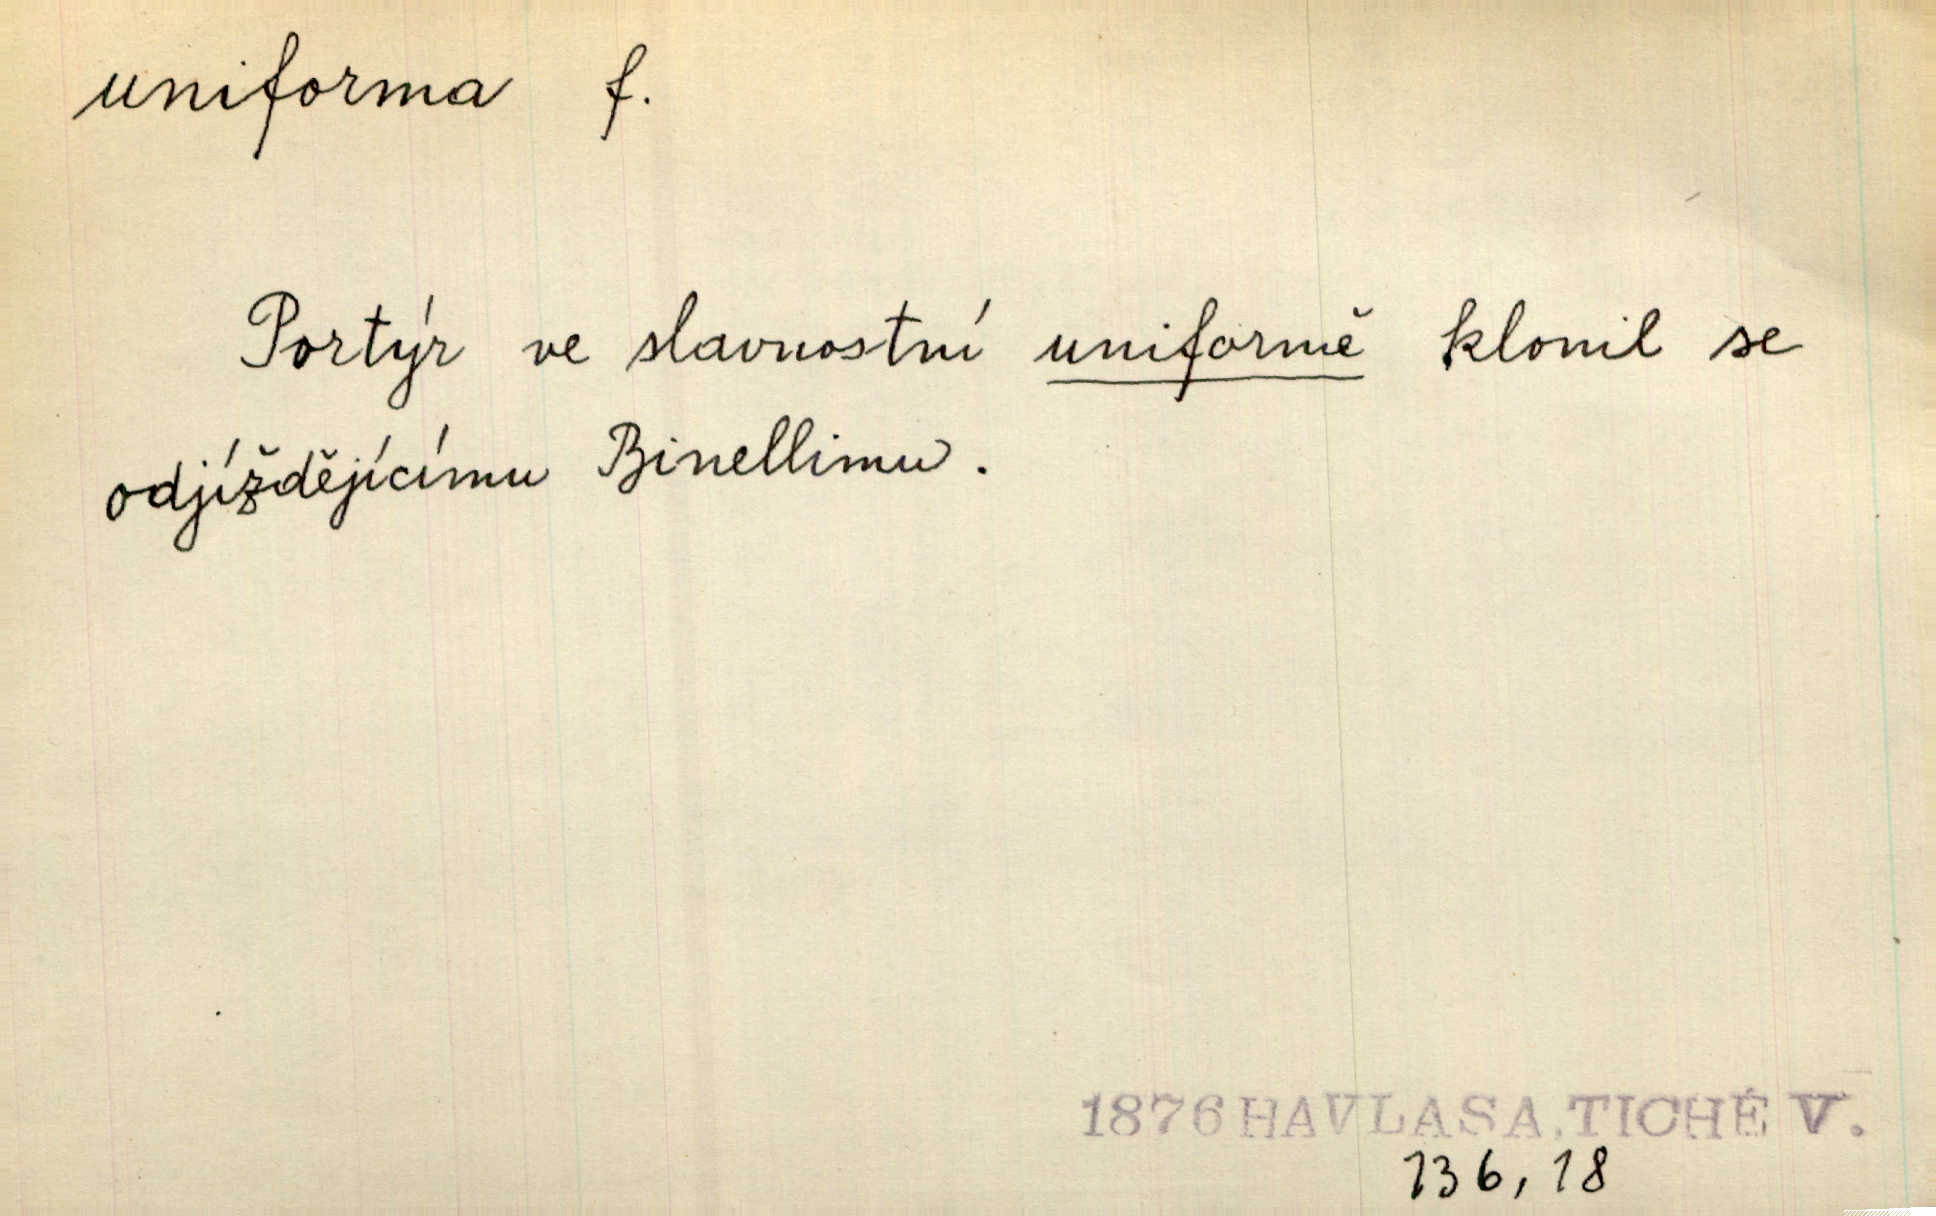 uniforma f.
Portýr ve slavnostní uniformě klonil se
odjíždějícímu Binellimu.
1876 HAVLASA, TICHÉ V.
136, 18